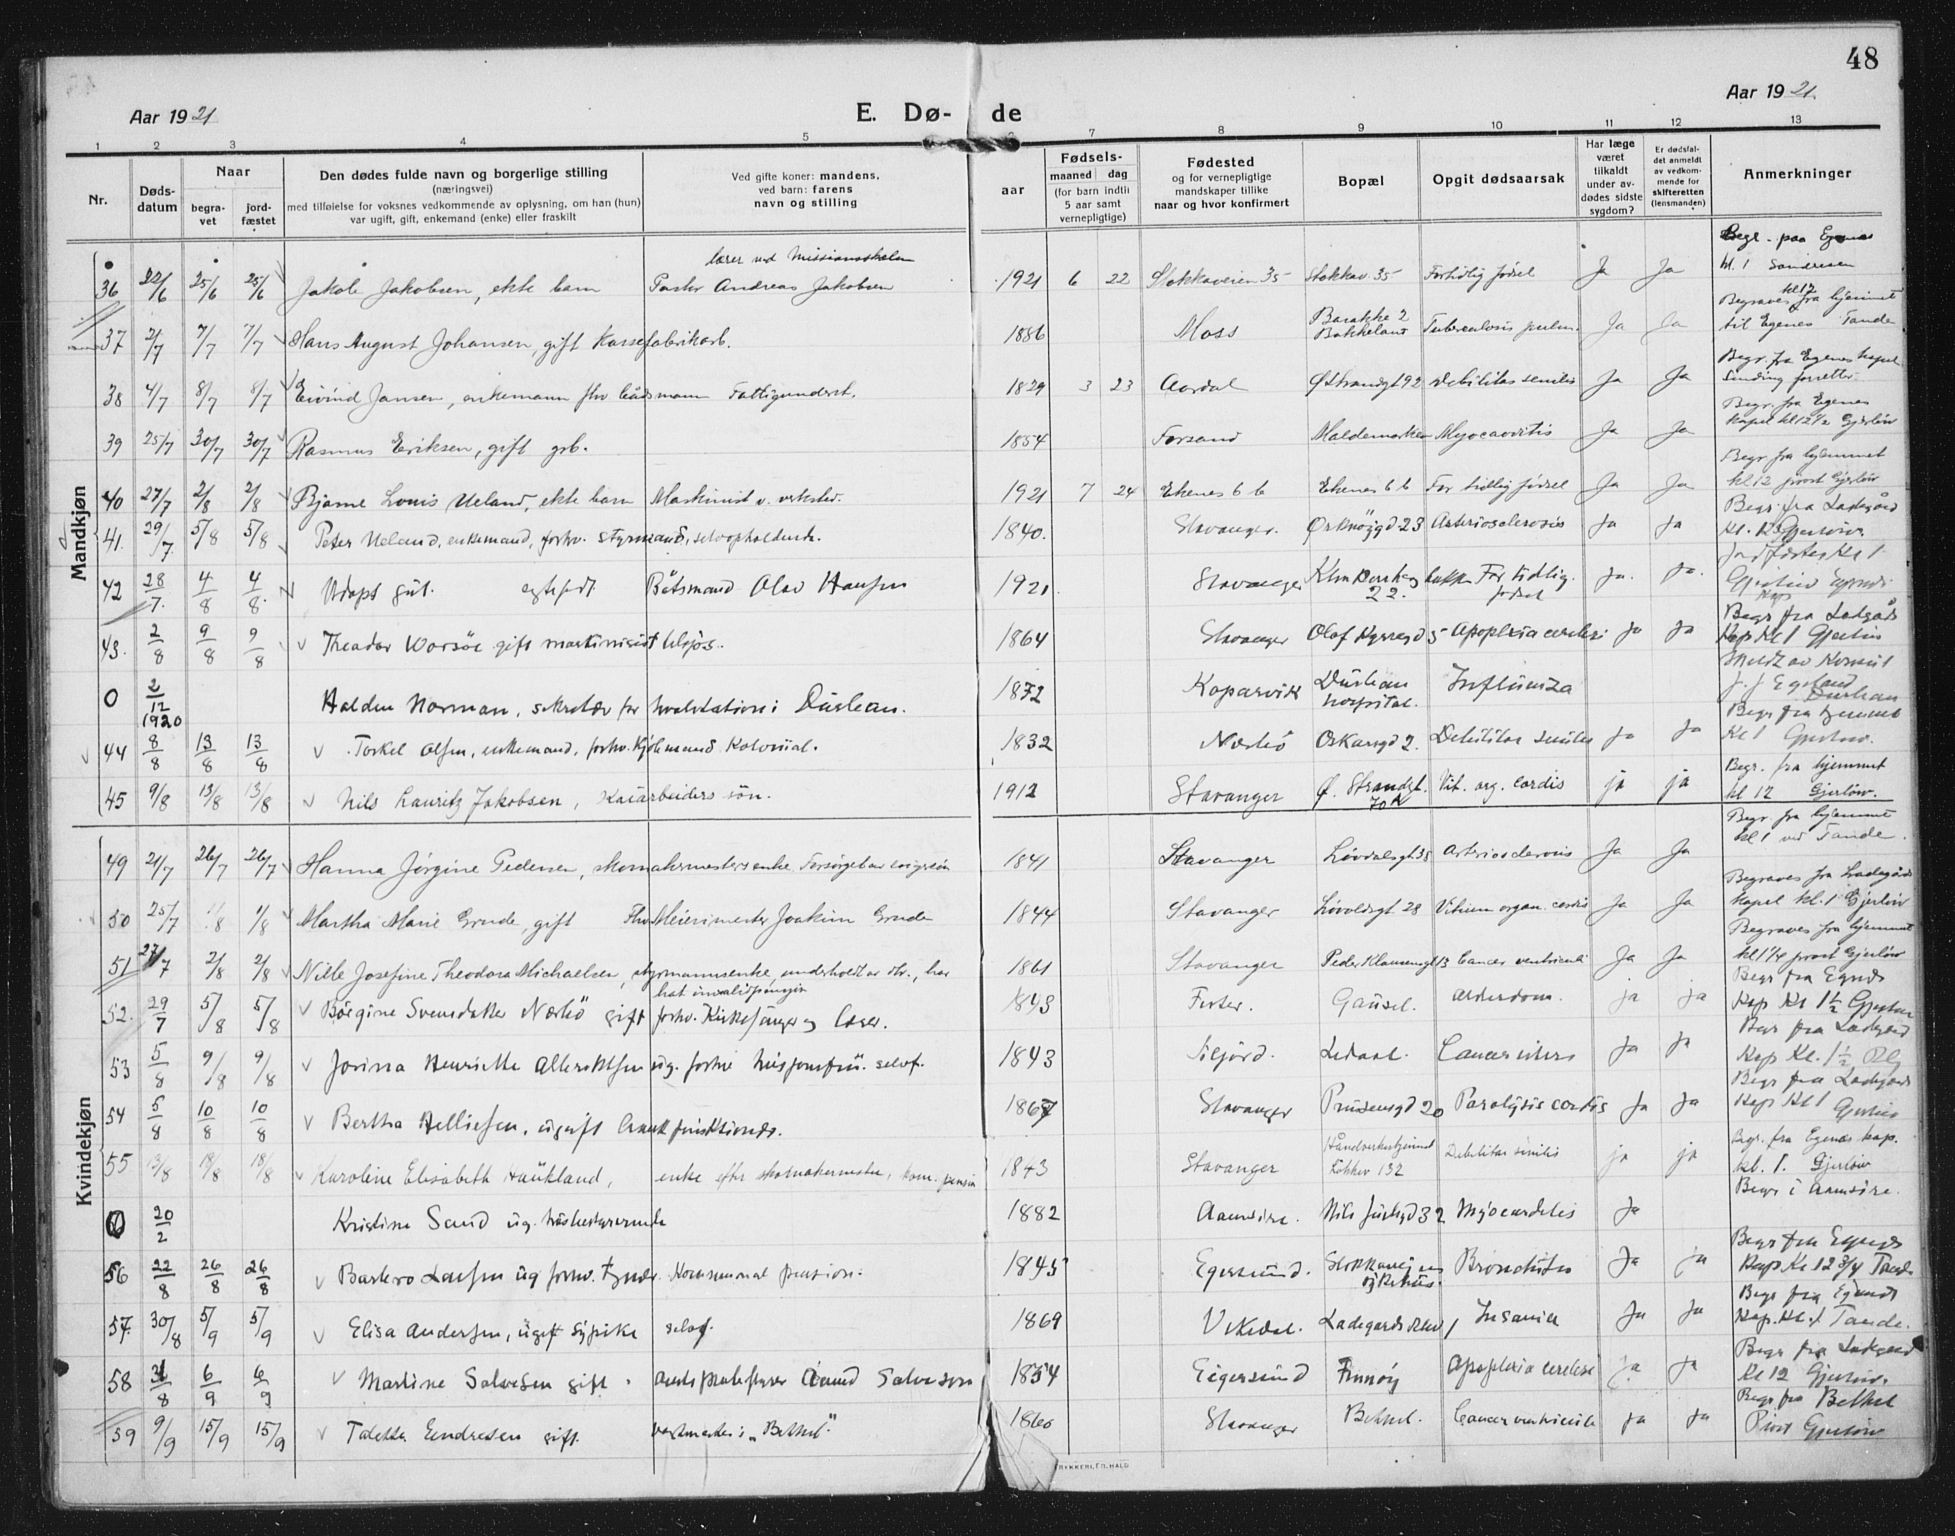 48
Aar 1921
E. Dø- de
Aar 1921
1 2 3 4 5 6 7 8 9 10 11 12 13
Nr.
Døds-datum
Naar
begra-vet
jord-fæstet
Den dødes fulde navn og borgerlige stilling
(næringsvei)
med tilføielse for voksnes vedkommende av oplysning, om han (hun)
var ugift, gift, enkemand (enke) eller fraskilt
Ved gifte koner: mandens,
ved barn: farens
navn og stilling
aar
Fødsels-
maaned dag
(for barn indtil
5 aar samt
vernepligtige)
Fødested
og for vernepligtige
mandskaper tillike
naar og hvor konfirmert
Bopæl
Opgit dødsaarsak
Har læge
været
tilkaldt
under av-
dødes sidste
sygdom?
Er dødsfal-
det anmeldt
av vedkom-
mende for
skifteretten
(lensmanden)
Anmerkninger
Mandkjøn
lærer ved Missionsskolen
Begr. paa Egenes
36 22/6 25/6 25/6 Jakob Jakobsen, ekte barn Pastor Andreas Jakobsen 1921 6 22 Stokkaveien 35 Stokkav. 35 Fortidlig fødsel Ja Ja kl. 1
Begraves fra hjemmet kl 12
37 2/7 7/7 7/7 Hans August Johansen, gift Kassefabrikarb. 1886 Moss Barakke 2 Bakkeland Tuberculosis pulm. Ja Ja til Egenes Tande
Begr. fra Egenes kapel
38 4/7 8/7 8/7 Eivind Jansen, enkemann fhv baadsmann Fattigunderst. 1829 3 23 Aardal Ø Strandgt 92 Debilitas senilis Ja Ja Sinding forretter
Begr. fra Egenes
39 25/7 30/7 30/7 Rasmus Eriksen, gift grb. 1854 Forsand Maldemarken Myocarditis Ja Ja kapel kl 12 1/2 Gjerløw
Begr fra hjemmet
40 27/7 2/8 2/8 Bjarne Louis Ueland, ekte barn Maskinist v. verksted. 1921 7 24 Ekenes 6 b Ekenes 6 b For tidlig fødsel Ja Ja kl 12 prost Gjerløw
Begr. fra Ladegård
41. 29/7 5/8 5/8 Peter Ueland, enkemand, forhv. styrmand, selvopholdende. 1840. Stavanger. Orknöygd 23 Arteriosclerosis Ja Ja
Jordfæstes Kl 1
42 28/7. 4/8 4/8. Udøpt gut. egtefødt Båtsmand Olav Hansen 1921 Stavanger 22. For tidlig fødsel Ja. Ja.
Begr fra Ladgårds
43. 2/8 9/8 9/8 Theodor Worsöe gift 1864 Stavanger Olaf Kyrresgd 5 Apoplexia cerebri Ja Ja Kap Kl 1
Meldt av Konsul
0 2/12 1920 Halden Norman, sekretær for hvalstation i Durban. 1872 Kopervik Durban hospital. Influenza J. J Egeland Durban
Begr fra hjemmet
44 8/8 13/8 13/8 Torkel Olsen, enkemand, forhv. Kjöbmand Kolonial. 1832 Nærbö Oskarsgd 2. Debilitas senilis Ja Ja Kl 1
Begr. fra hjemmet
45 9/8 13/8 13/8 Nils Lauritz Jakobsen, Kaiarbeiders søn. 1912 Stavanger Ø. Strandgt. 70 A Vit. org. cordis ja ja kl 12 Gjerløw.
Kvindekjøn
Begr. fra hjemmet
49 21/7 26/7 26/7 Hanna Jørgine Pedersen, skomakermesters enke 1841 Stavanger Løvdalsgt. 38 Arteriosclerosis Ja Ja kl 1 ved Tande.
Begraves fra Ladegårds
50 25/7 1/8 1/8 Martha Marie Grude, gift Fhv Meierimester Joakim Grude 1844 Stavanger Løvoldsgt 28 Vitium organ. cordis Ja Ja kapel kl. 1 Gjerløw
Begraves fra hjemmet
51 27/7 2/8 2/8 Nille Josefine Theodora Michaelsen, styrmannsenke, 1861 Stavanger Peder Klausønsgt 13 Cancer ventriculi Ja Ja prost Gjerløw
hat invalidpengin Begr fra Egnes
52. 29/7 5/8 5/8 Börgine Svendsdatter Nærbö gift forhv. Kirkesanger og lærer. 1843 Gausel. ja ja Kap Kl 1 1/2
Begr fra Ladegård
53 5/8 9/8 9/8 Jorina Henriette ug. 1843 Ledaal. Cancer uteri Ja Ja Kap Kl. 1 1/2
Begr fra Ladegårds
54 5/8 10/8 10/8 Bertha Helliesen, ugift 1867 Stavanger 20 Paralysis cordis Ja Ja Kap Kl 1
Begr. fra Egenes kap.
55 13/8 18/8 18/8 Karoline Elisabeth Haukland, enke efter skomakermester, kom. pension 1843 Stavanger Løkkev 132 Debilitas senilis ja ja kl. 1. Gjerløw
Begr i Aamsire.
0 20/2 Kristine Sand ug. husbestyrerinde 1882 Aamsire. Nils Juelsgd 32 Myocarditis Ja
Begr fra Egenes
56 22/8 26/8 26/8 ug forhv. tjener. Kommunal pension. 1845 Egersund. Bronchitis Ja ja Kap Kl 12 3/4 Tande
Begr fra Egenes
57. 30/8 5/9 5/9 Elisa Andersen, ugift sypike selvf. 1869 Vikedal. Insania Ja Ja Kap. Kl. 1 Tande.
Begr fra Ladegaard
58 31/8 6/9 6/9 Martine Salvesen gift Salvesen 1854 Eigersund Finnöy Apoplexia cerebri Ja Ja Kl 12
Begr fra Bethel
59 9/9 15/9 15/9 Taletta Endresen gift. vagtmester i „Bethel". 1860 Stavanger Bethel. Cancer ventriculi Ja Ja Prost
TRYKKERI, FR. HALD